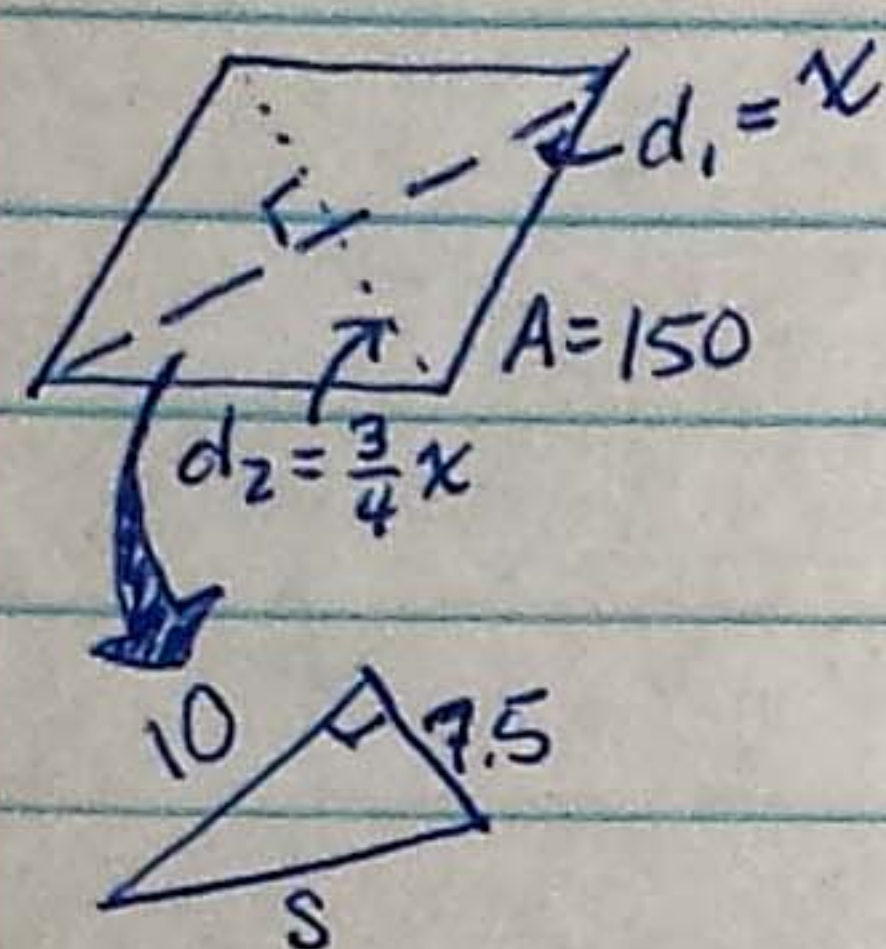 d₁ = x
A = 150
d₂ = 3/4 x
10
7.5
S